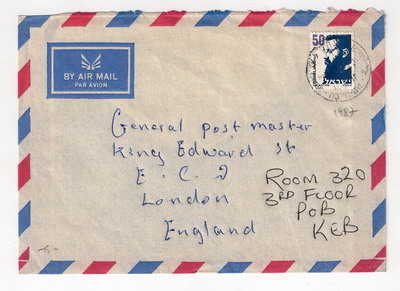 BY AIR MAIL
PAR AVION
50
ישראל
1987
General post master
King Edward st
E.C 2
London
England
ROOM 320
3RD FLOOR
POB
KEB